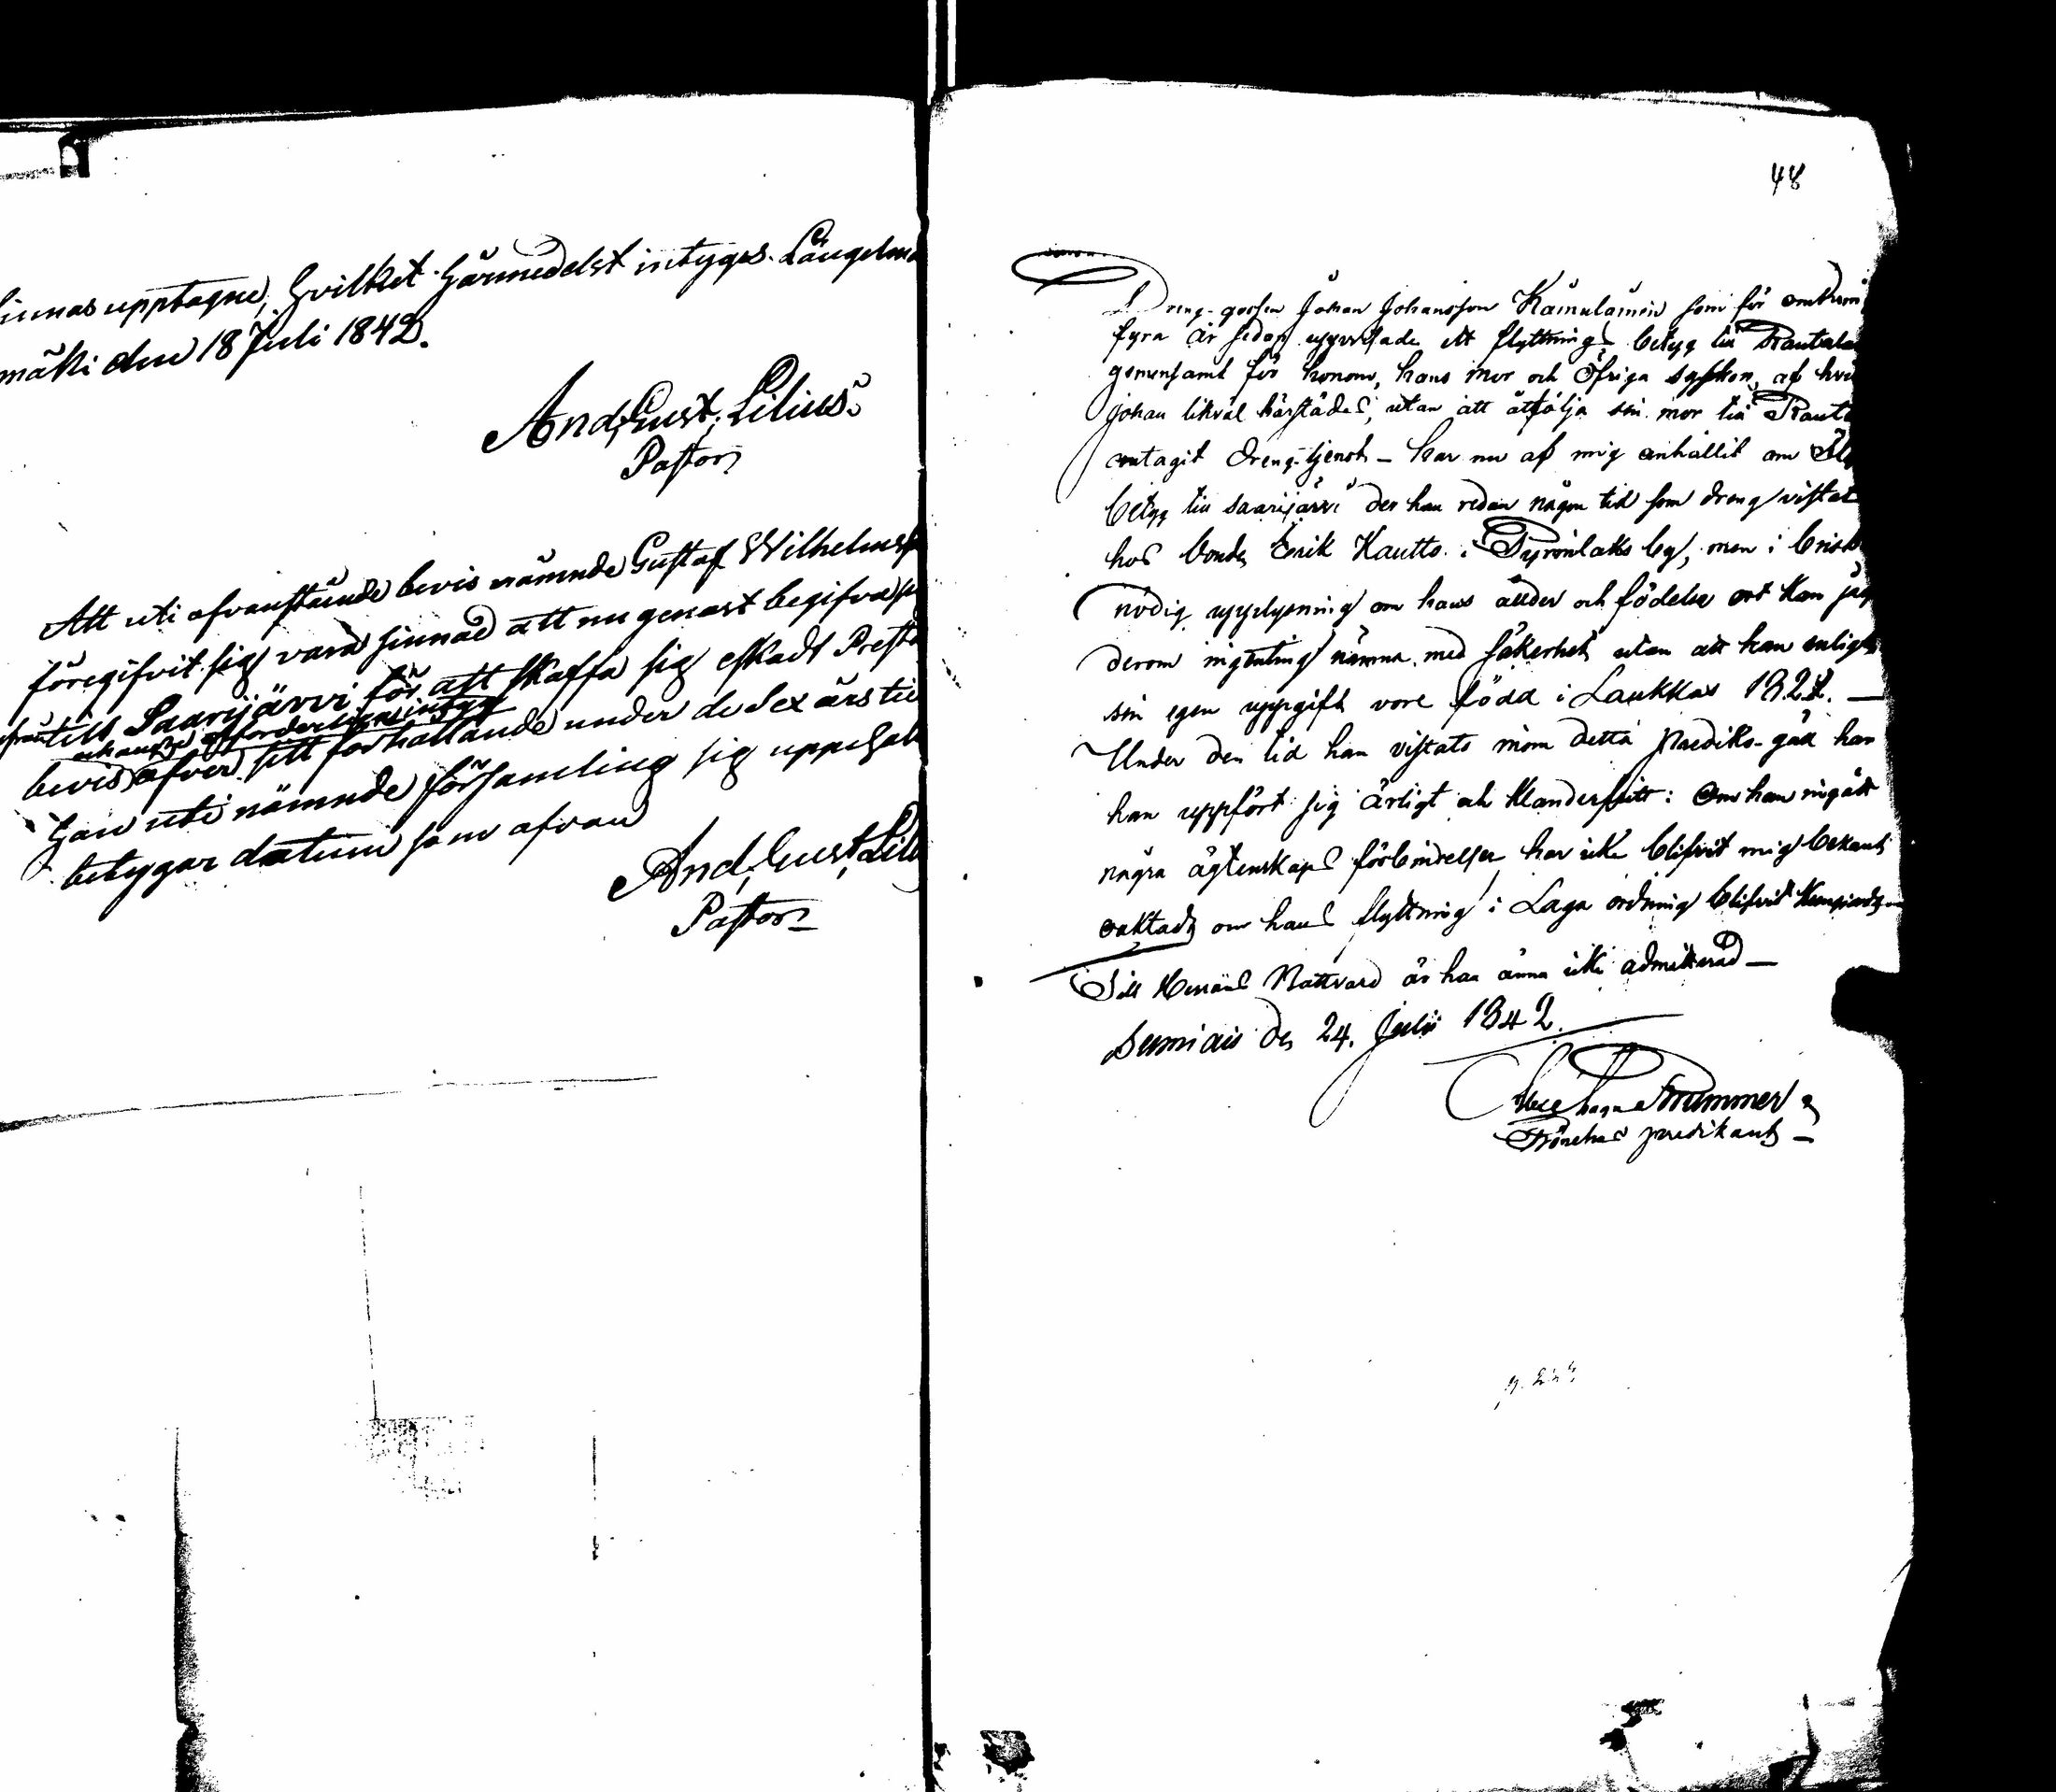 finnas upptagne, hvilket härmedelst intygas. Längelmä
mäki den 18 Juli 1842.
And, Gust, Lilius.
Pastor
Att uti ofvanstående bevis nämnde Gustaf Wilhelmss
föregifvit sig vara sinnad att nu genast begifva si
till Saarijärvi för att skaffa sig eskadt Prest
bevis öfver sitt förhållande under de Sex års ti
han uti nämnde församling sig uppehål
betygar datum som ofvan
And, Gust, Lili
Pastor
48
Dreng-gossen Johan Johansson Kämuläinen som för omkrin
fyra år sedan utverkade ett flyttnings betyg till Rautala
gemensamt för honom, hans mor och öfriga syskon, af hvi
Johan likväl härstädes, utan att åtfölja sin mor till Raut
antagit dreng-tjenst – har nu af mig anhållit om
betyg till Saarijärvi der han redan någon tid som dreng vistat
hos bonden Erik Kautto i Pyrönlaks by, men i brist
nödig upplysning om hans ålder och födelse ort kan jag
derom ingenting nämna med säkerhet utan att han enligt
sin egen uppgift vore född i Laukkas 182
Under den tid han vistats inom detta prediko-gäll har
han uppfört sig ärligt och klanderfritt: Om han ingått
några ägtenskaps förbindelser har icke blifvit mig bekant
oaktadt om hans flyttning i Laga ordning blifvit
Till Herrans Nattvard är han ännu icke admitterad –
Sumiais den 24. Julii 1842.
Trummer
predikant –